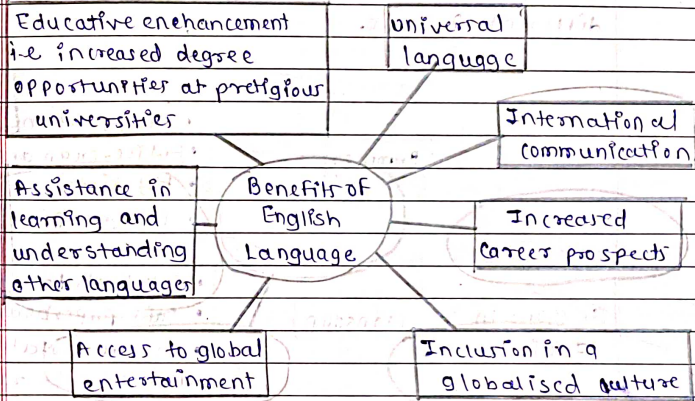 Educative enehancement
i.e increased degree
opportunities at pretigious
universities
universal
language
International
communication
Assistance in
learning and
understanding
other languages
Benefits of
English
Language
Increased
Career prospects
Access to global
entertainment
Inclusion in a
globalised culture